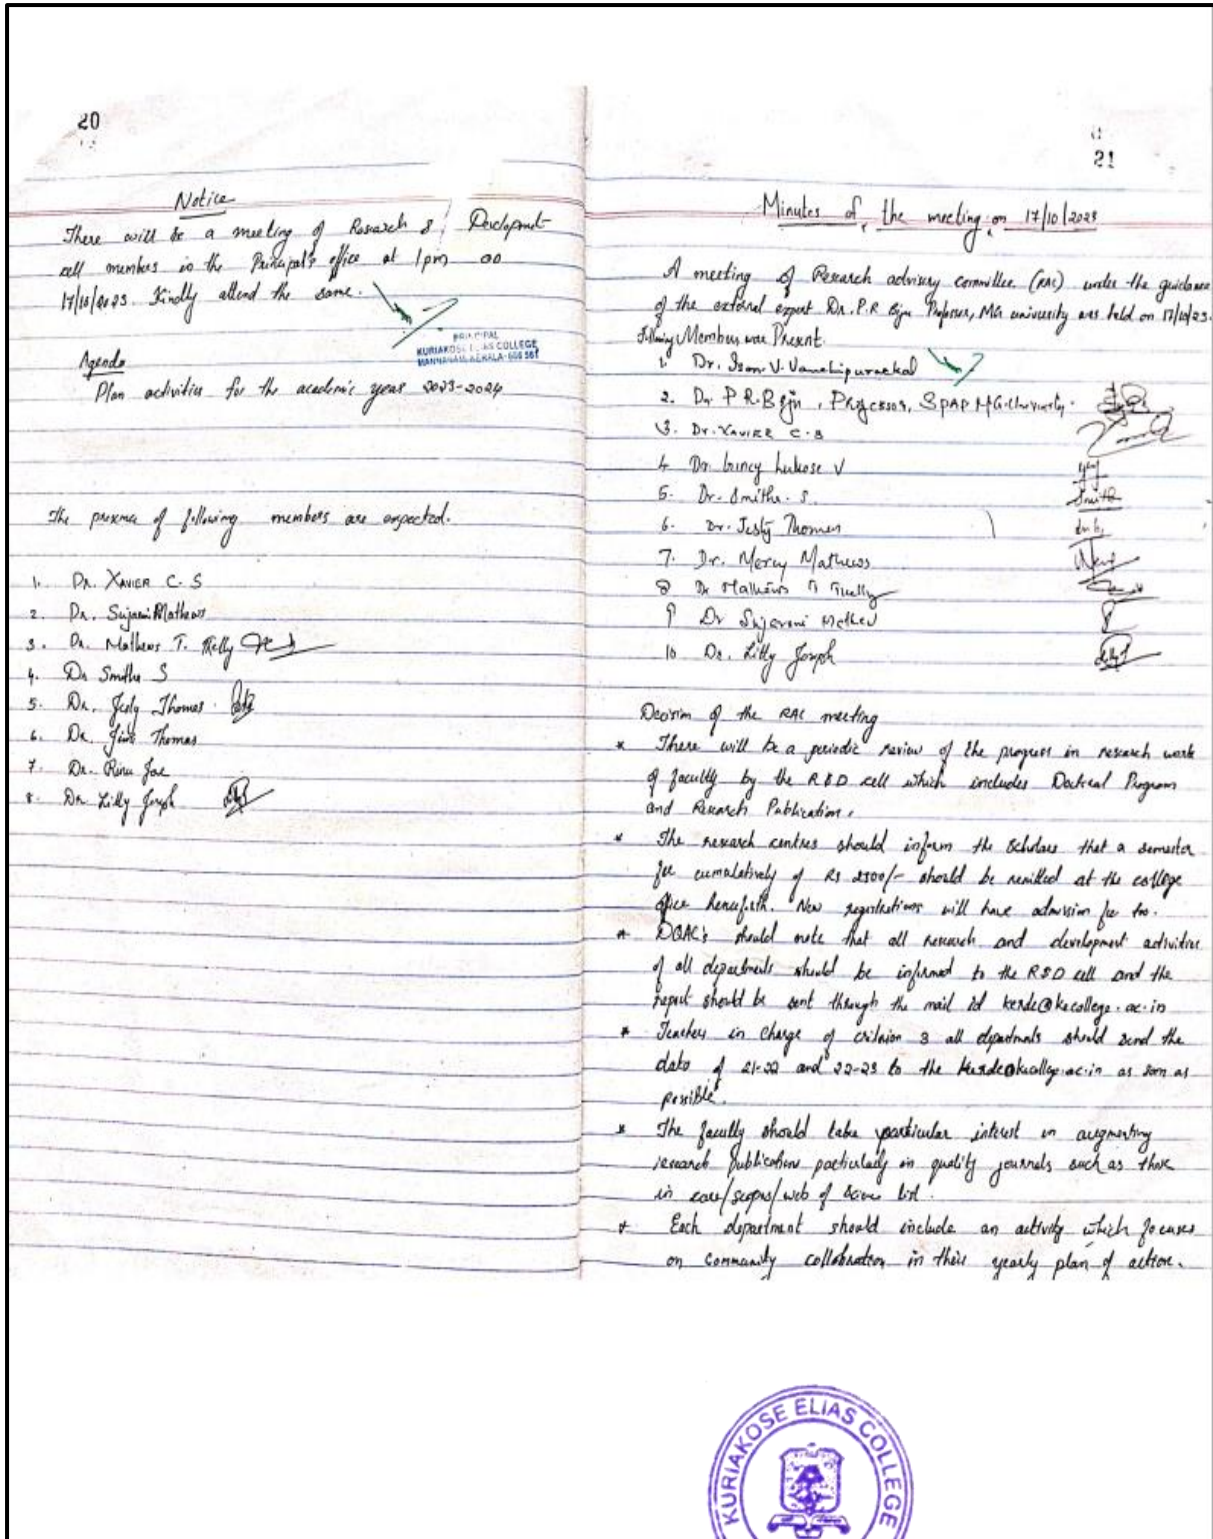 20
Notice
There will be a meeting of Research & Development
cell members in the Principal's office at 1pm on
17/10/2023. Kindly attend the same.
PRINCIPAL
KURIAKOSE ELIAS COLLEGE
MANNANAM, KERALA-686 561
Agenda
Plan activities for the academic year 2023-2024
The presence of following members are expected.
1. Dr. XAVIER C. S
2. Dr. Sujarani Mathew
3. Dr. Mathews T. Thelly
4. Dr Smitha S
5. Dr. Jesty Thomas
6. Dr. Thomas
7. Dr. Rinu Joe
8. Dr Lilly Joseph
21
Minutes of the meeting on 17/10/2023
A meeting of Research advisory committee (RAC) under the guidance
of the external expert Dr. P.R Biju Professor, MG university was held on 17/10/23.
Following Members were Present.
1. Dr. Ison V. Vanchipurackal
2. Dr P R. Biju, Professor, SPAP MG-University.
3. Dr. XAVIER C. S
4 Dr. Lukose V
5. Dr. Smitha. S.
6. Dr. Jesty Thomas
7. Dr. Mercy Mathews
8 Dr Mathews T Thelly
9 Dr Sujarani Mathew
10 Dr. Lilly Joseph
Decision of the RAC meeting
* There will be a periodic review of the progress in research work
of faculty by the R&D cell which includes Doctoral Program
and Research Publication.
* The research centres should inform the scholars that a semester
fee cumulatively of Rs 2500/- should be remitted at the college
office henceforth. New registrations will have admission fee too.
* DQAC's should note that all research and development activities
of all departments should be informed to the R&D cell and the
report should be sent through the mail id kerdc@kecollege.ac.in
* Teachers in charge of criterion 3 all departments should send the
data of 21-22 and 22-23 to the kerdc@kecollege.ac.in as soon as
possible.
* The faculty should take particular interest in augmenting
research publication particularly in quality journals such as those
in care/scopus/web of science list.
* Each department should include an activity which focuses
on community collaboration in their yearly plan of action.
KURIAKOSE ELIAS COLLEGE